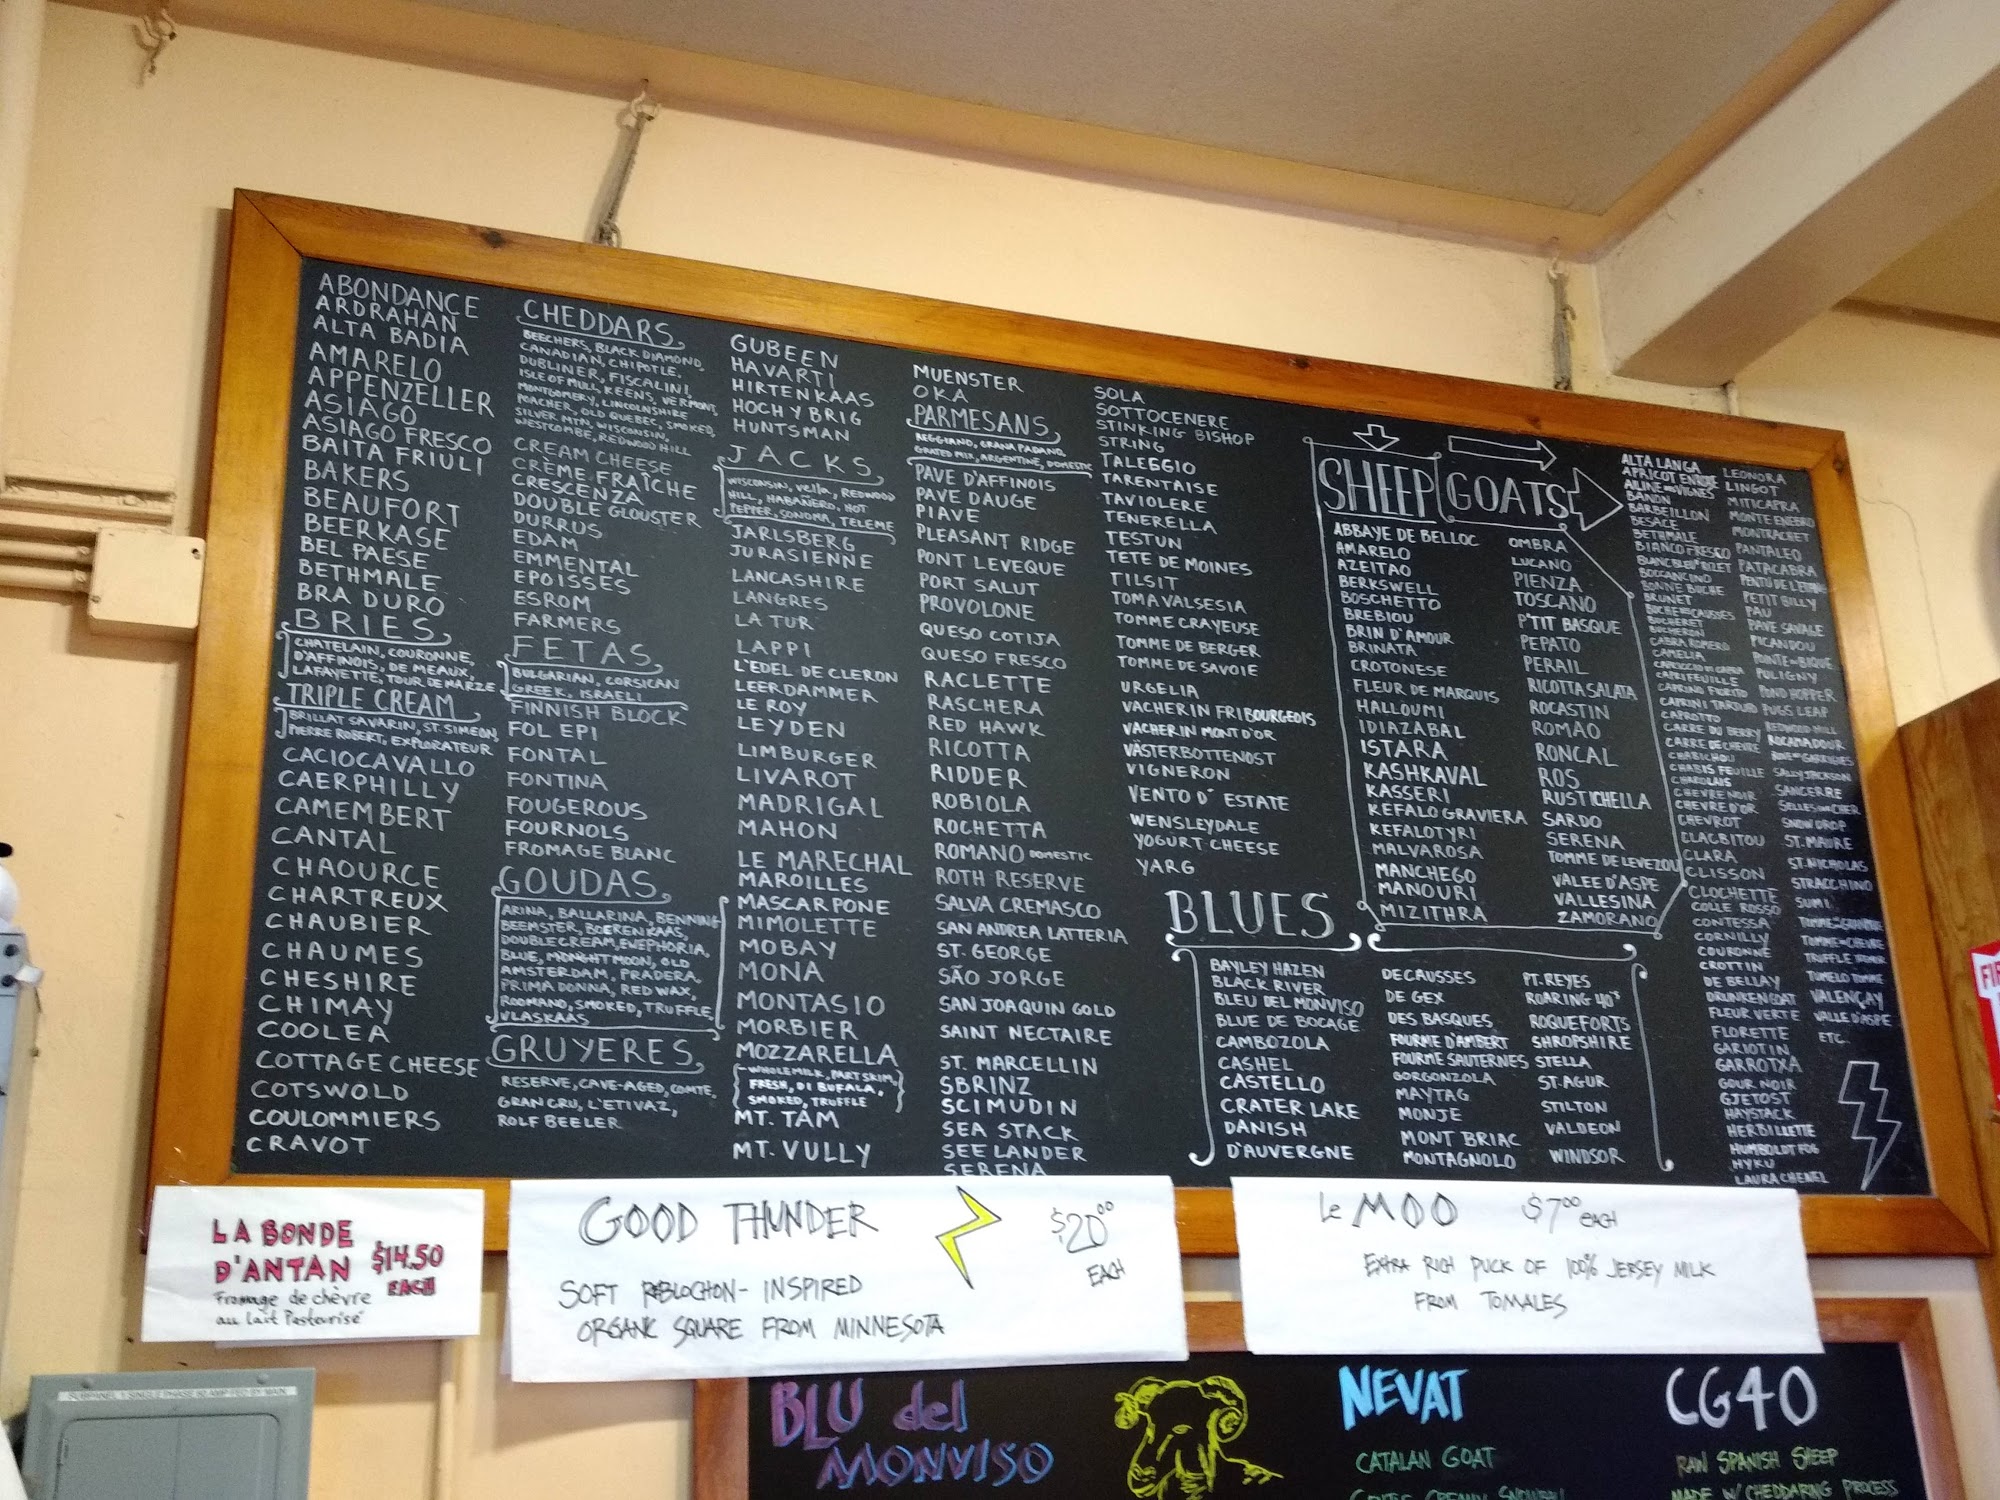 ABONDANCE
ARDRAHAN
ALTA BADIA
AMARELO
APPENZELLER
ASIAGO
ASIAGO FRESCO
BAITA FRIULI
BAKERS
BEAUFORT
BEERKASE
BEL PAESE
BETHMALE
BRA DURO
BRIES
CHATELAIN, COURONNE,
D'AFFINOIS, DE MEAUX,
LAFAYETTE, TOUR DE MARZE
TRIPLE CREAM
BRILLAT SAVARIN, ST. SIMEON,
PIERRE ROBERT, EXPLORATEUR
CACIOCAVALLO
CAERPHILLY
CAMEMBERT
CANTAL
CHAOURCE
CHARTREUX
CHAUBIER
CHAUMES
CHESHIRE
CHIMAY
COOLEA
COTTAGE CHEESE
COTSWOLD
COULOMMIERS
CRAVOT
CHEDDARS
BEECHERS, BLACK DIAMOND,
CANADIAN, CHIPOTLE,
DUBLINER, FISCALINI,
ISLE OF MULL, KEENS, VERMONT,
MONTGOMERY, LINCOLNSHIRE
POACHER, OLD QUEBEC, SMOKED,
SILVER MTN, WISCONSIN,
WESTCOMBE, REDWOOD HILL
CREAM CHEESE
CRÈME FRAÎCHE
CRESCENZA
DOUBLE GLOUSTER
DURRUS
EDAM
EMMENTAL
EPOISSES
ESROM
FARMERS
FETAS
BULGARIAN, CORSICAN
GREEK, ISRAELI
FINNISH BLOCK
FOL EPI
FONTAL
FONTINA
FOUGEROUS
FOURNOLS
FROMAGE BLANC
GOUDAS
ARINA, BALLARINA, BENNING
BEEMSTER, BOERENKAAS,
DOUBLE CREAM, EWEPHORIA,
BLUE, MIDNIGHT MOON, OLD
AMSTERDAM, PRADERA,
PRIMA DONNA, RED WAX,
ROOMANO, SMOKED, TRUFFLE,
VLASKAAS
GRUYERES
RESERVE, CAVE-AGED, COMTE,
GRAN CRU, L'ETIVAZ,
ROLF BEELER
GUBEEN
HAVARTI
HIRTENKAAS
HOCH YBRIG
HUNTSMAN
JACKS
WISCONSIN, VELLA, REDWOOD
HILL, HABAÑERO, HOT
PEPPER, SONOMA, TELEME
JARLSBERG
JURASIENNE
LANCASHIRE
LANGRES
LA TUR
LAPPI
L'EDEL DE CLERON
LEERDAMMER
LE ROY
LEYDEN
LIMBURGER
LIVAROT
MADRIGAL
MAHON
LE MARECHAL
MAROILLES
MASCARPONE
MIMOLETTE
MOBAY
MONA
MONTASIO
MORBIER
MOZZARELLA
WHOLE MILK, PART SKIM,
FRESH, DI BUFALA,
SMOKED, TRUFFLE
MT. TAM
MT. VULLY
MUENSTER
OKA
PARMESANS
REGGIANO, GRANA PADANO,
GRATED MIX, ARGENTINE, DOMESTIC
PAVE D'AFFINOIS
PAVE DAUGE
PIAVE
PLEASANT RIDGE
PONT LEVEQUE
PORT SALUT
PROVOLONE
QUESO COTIJA
QUESO FRESCO
RACLETTE
RASCHERA
RED HAWK
RICOTTA
RIDDER
ROBIOLA
ROCHETTA
ROMANO DOMESTIC
ROTH RESERVE
SALVA CREMASCO
SAN ANDREA LATTERIA
ST. GEORGE
SÃO JORGE
SAN JOAQUIN GOLD
SAINT NECTAIRE
ST. MARCELLIN
SBRINZ
SCIMUDIN
SEA STACK
SEELANDER
SERENA
SOLA
SOTTOCENERE
STINKING BISHOP
STRING
TALEGGIO
TARENTAISE
TAVIOLERE
TENERELLA
TESTUN
TETE DE MOINES
TILSIT
TOMA VALSESIA
TOMME CRAYEUSE
TOMME DE BERGER
TOMME DE SAVOIE
URGELIA
VACHERIN FRIBOURGEOIS
VACHERIN MONT D'OR
VÄSTERBOTTENOST
VIGNERON
VENTO D'ESTATE
WENSLEYDALE
YOGURT CHEESE
YARG
BLUES
BAYLEY HAZEN
BLACK RIVER
BLEU DEL MONVISO
BLUE DE BOCAGE
CAMBOZOLA
CASHEL
CASTELLO
CRATER LAKE
DANISH
D'AUVERGNE
DE CAUSSES
DE GEX
DES BASQUES
FOURME D'AMBERT
FOURME SAUTERNES
GORGONZOLA
MAYTAG
MONJE
MONT BRIAC
MONTAGNOLO
PT. REYES
ROARING 40'S
ROQUEFORTS
SHROPSHIRE
STELLA
ST. AGUR
STILTON
VALDEON
WINDSOR
SHEEP GOATS
ABBAYE DE BELLOC
AMARELO
AZEITAO
BERKSWELL
BOSCHETTO
BREBIOU
BRIN D'AMOUR
BRINATA
CROTONESE
FLEUR DE MARQUIS
HALLOUMI
IDIAZABAL
ISTARA
KASHKAVAL
KASSERI
KEFALOGRAVIERA
KEFALOTYRI
MALVAROSA
MANCHEGO
MANOURI
MIZITHRA
OMBRA
LUCANO
PIENZA
TOSCANO
P'TIT BASQUE
PEPATO
PERAIL
RICOTTA SALATA
ROCASTIN
ROMAO
RONCAL
ROS
RUSTICHELLA
SARDO
SERENA
TOMME DE LEVEZOU
VALEE D'ASPE
VALLESINA
ZAMORANO
ALTA LANGA
APRICOT
BANON
BARBEILLON
BESACE
BETHMALE
BIANCO FRESCO
BOCCANCINO
BONNE BUCHE
BRUNET
BUCHERET
BUCHERON
CABRA ROMERO
CAMELIA
CAPRIFEUILLE
CAPRINO FRESCO
CAPRINI TARTUFO
CAPROTTO
CARRE DU BERRY
CARRE DE CHEVRE
CHABICHOU
CHABIS FEUILLE
CHAROLAIS
CHEVRE NOIR
CHEVRE D'OR
CHEVROT
CLACBITOU
CLARA
CLISSON
CLOCHETTE
COLLE ROSSO
CONTESSA
CORNILLY
COURONNE
CROTTIN
DE BELLAY
DRUNKEN GOAT
FLEUR VERTE
FLORETTE
GARIOTIN
GARROTXA
GOUR NOIR
GJETOST
HAYSTACK
HERBILLETTE
HUMBOLDT FOG
HYKU
LAURA CHENEL
LEONORA
LINGOT
MITICAPRA
MONTE ENEBRO
MONTRACHET
PANTALEO
PATACABRA
PETIT BILLY
PAU
PAVE SAVALE
PICANDOU
POINTE DE BIQUE
PULIGNY
POND HOPPER
PUGS LEAP
REDWOOD HILL
ROCAMADOUR
ROVE DES GARRIGUES
SALLY JACKSON
SANCERRE
SELLES SUR CHER
SNOW DROP
ST. MAURE
ST. NICHOLAS
STRACCHINO
SUMI
TOMME DE CHEVRE
TRUFFLE TREMOR
TUMELO TOMME
VALENÇAY
VALLE D'ASPE
ETC.
LA BONDE
D'ANTAN
$14.50
EACH
Fromage de chèvre
au lait Pasteurisé
GOOD THUNDER
$20.00
EACH
SOFT REBLOCHON-INSPIRED
ORGANIC SQUARE FROM MINNESOTA
Le MOO $7.00 EACH
EXTRA RICH PUCK OF 100% JERSEY MILK
FROM TOMALES
SUBPANEL 1 SINGLE PHASE 60 AMP FED BY MAIN
BLU del
MONVISO
NEVAT
CATALAN GOAT
CG40
RAW SPANISH SHEEP
MADE W/ CHEDDARING PROCESS